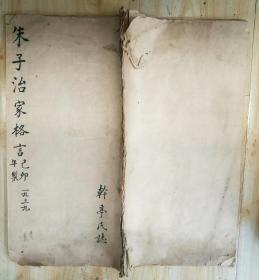 朱子治家格言
己卯
年製
一九三九
幹亭氏誌